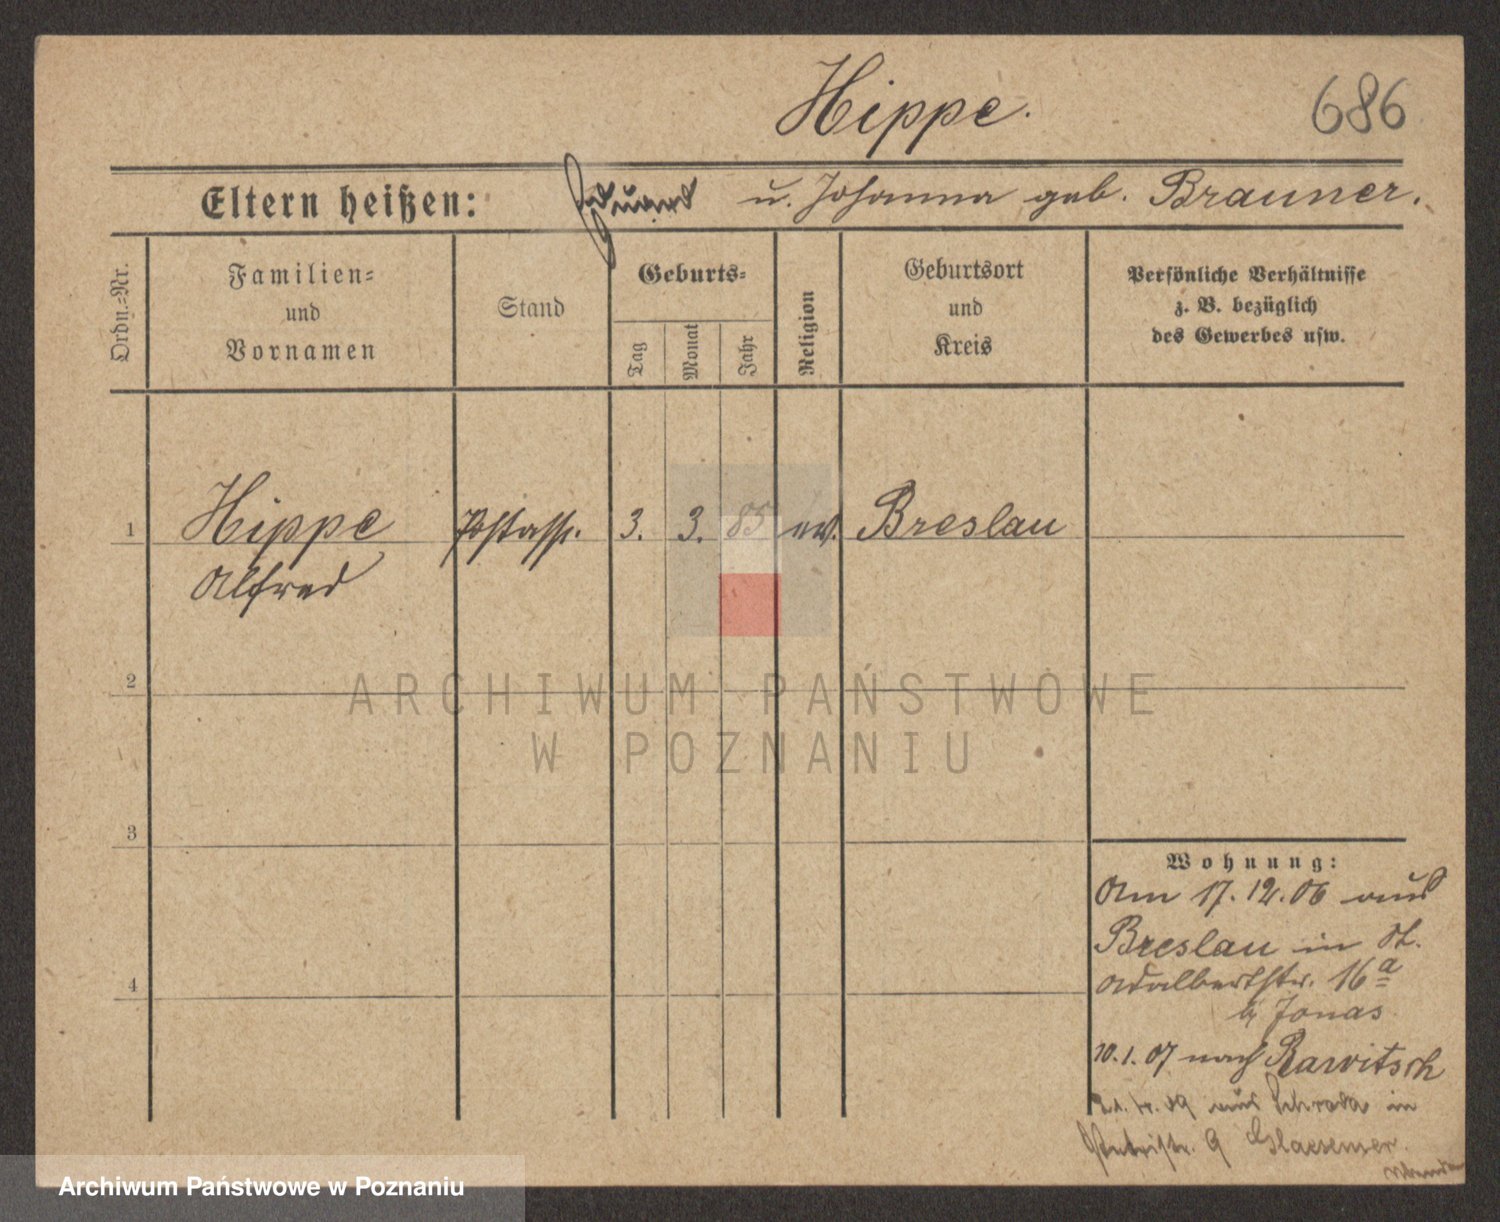 Hippe.
686
Eltern heißen: Eduard u. Johanna geb. Brauner.
Ordn.-Nr.
Familien-
und
Vornamen
Stand
Geburts-
Tag
Monat
Jahr
Religion
Geburtsort
und
Kreis
Persönliche Verhältnisse
z. B. bezüglich
des Gewerbes usw.
1 Hippe Postass. 3. 3. 85 ev. Breslau
Alfred
2
3
4
Wohnung:
Am 17.12.06 aus
Breslau in St.
Adalbertstr. 16a
b. Jonas
10.1.07 nach Rawitsch
09 aus Schroda in
9 Glaesemer
ARCHIWUM PAŃSTWOWE
W POZNANIU
Archiwum Państwowe w Poznaniu